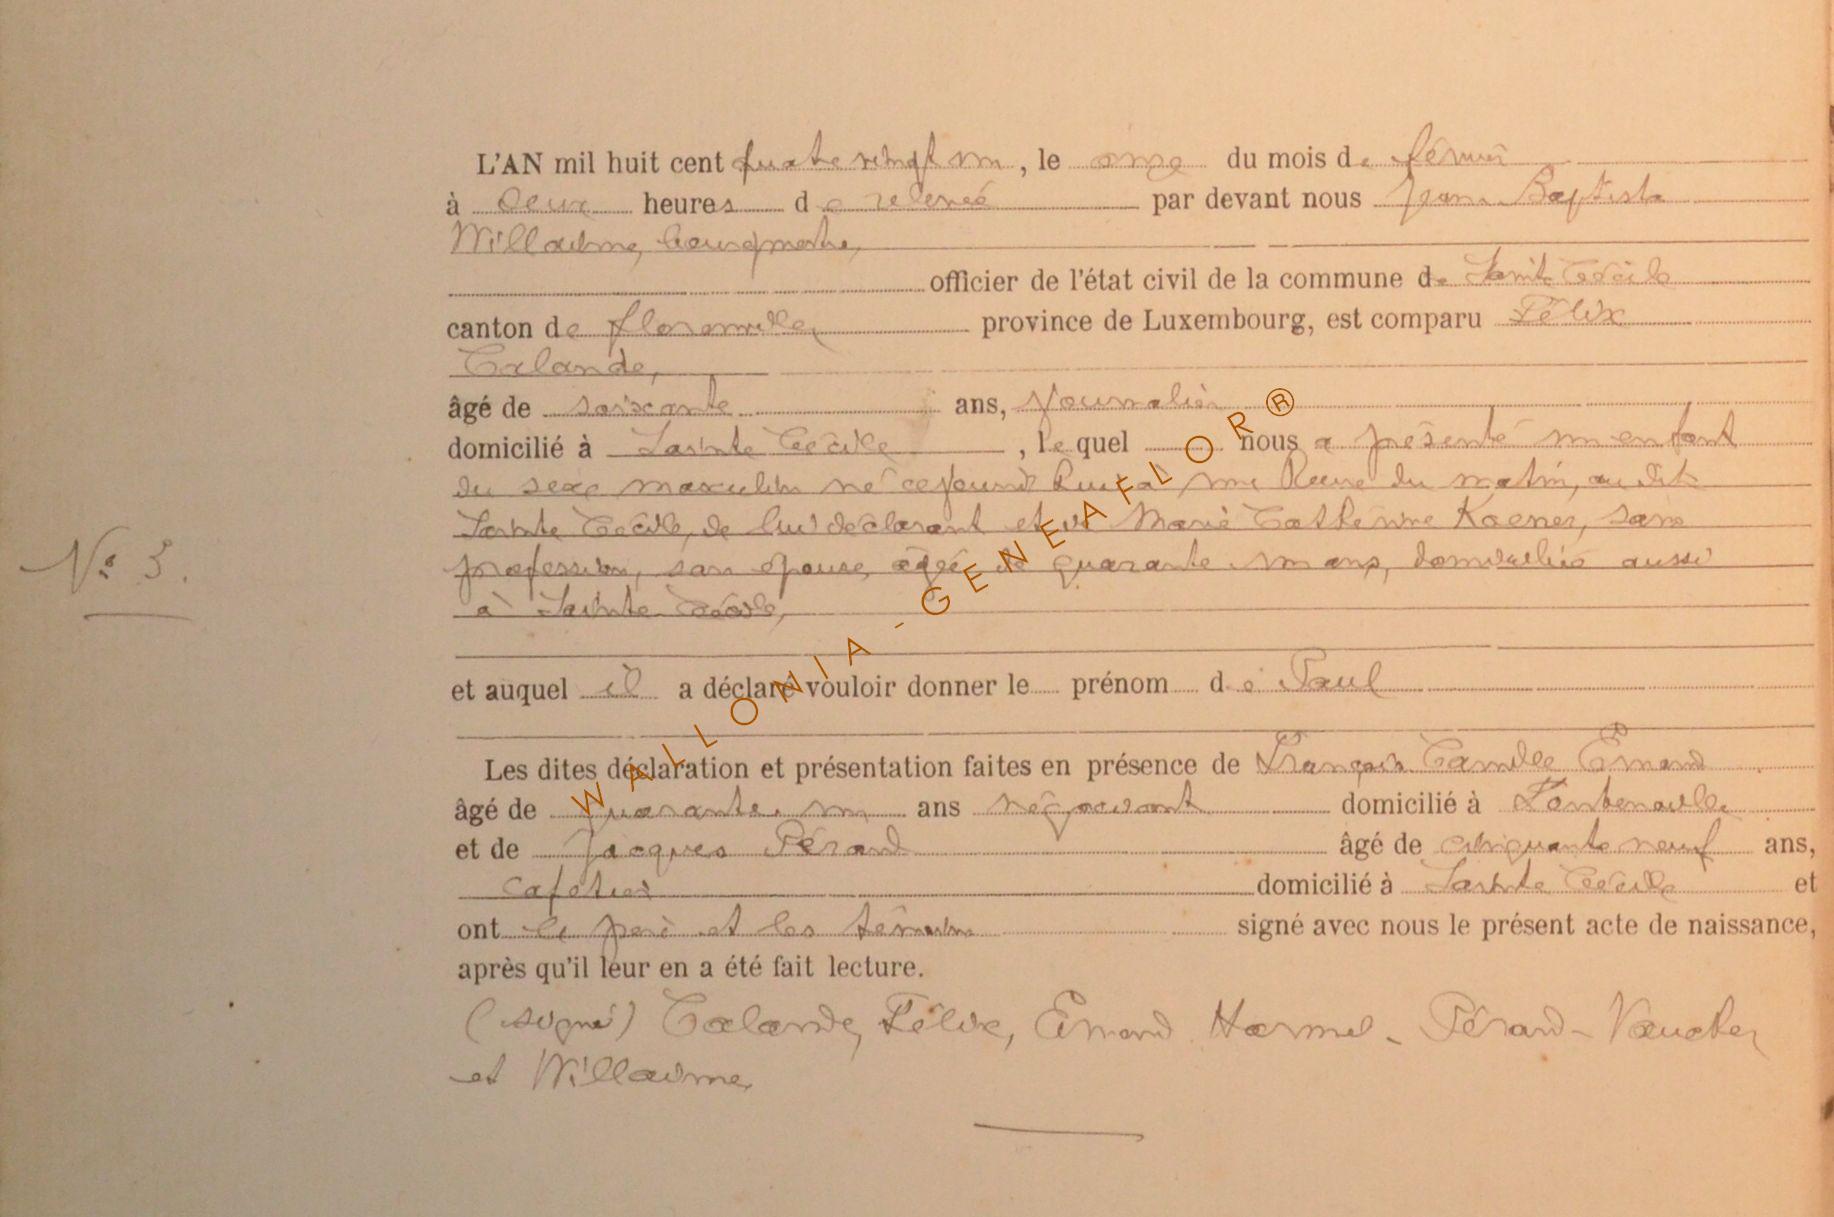 L'AN mil huit cent quatre vingt un, le onze du mois de février
à deux heures de relevée par devant nous Jean Baptiste
Willaume, bourgmestre,
officier de l'état civil de la commune de Sainte Cécile
canton de Florenville, province de Luxembourg, est comparu Félix
Calande,
âgé de soixante ans, journalier
domicilié à Sainte Cécile, lequel nous a présenté un enfant
du sexe masculin né ce jourd'hui à une heure du matin, au dit
Sainte Cécile, de lui déclarant et de Marie Catherine Koener, sans
profession, son épouse, âgée de quarante un ans, domiciliée aussi
à Sainte Cécile,
N° 3.
et auquel il a déclaré vouloir donner le prénom de Paul
Les dites déclaration et présentation faites en présence de François Camille Emond
âgé de quarante un ans négociant domicilié à Fontenoille
et de Jacques Pérard âgé de cinquante neuf ans,
cafetier domicilié à Sainte Cécile et
ont le père et les témoins signé avec nous le présent acte de naissance,
après qu'il leur en a été fait lecture.
(signé) Calande, Félix, Emond Harmel - Pérard-Vaucher
et Willaume
WALLONIA - GENEAFLOR ®